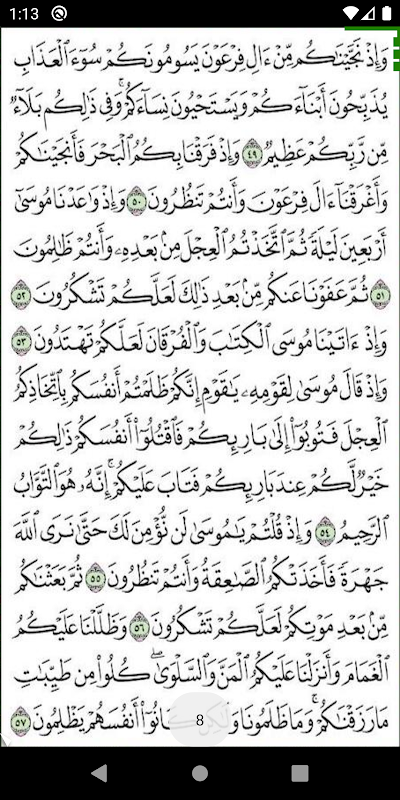 1:13
وَإِذْ نَجَّيْنَٰكُم مِّنْ ءَالِ فِرْعَوْنَ يَسُومُونَكُمْ سُوٓءَ ٱلْعَذَابِ
يُذَبِّحُونَ أَبْنَآءَكُمْ وَيَسْتَحْيُونَ نِسَآءَكُمْ ۚ وَفِى ذَٰلِكُم بَلَآءٌ
مِّن رَّبِّكُمْ عَظِيمٌ ٤٩ وَإِذْ فَرَقْنَا بِكُمُ ٱلْبَحْرَ فَأَنجَيْنَٰكُمْ
وَأَغْرَقْنَآ ءَالَ فِرْعَوْنَ وَأَنتُمْ تَنظُرُونَ ٥٠ وَإِذْ وَٰعَدْنَا مُوسَىٰٓ
أَرْبَعِينَ لَيْلَةً ثُمَّ ٱتَّخَذْتُمُ ٱلْعِجْلَ مِنۢ بَعْدِهِۦ وَأَنتُمْ ظَٰلِمُونَ
٥١ ثُمَّ عَفَوْنَا عَنكُم مِّنۢ بَعْدِ ذَٰلِكَ لَعَلَّكُمْ تَشْكُرُونَ ٥٢
وَإِذْ ءَاتَيْنَا مُوسَى ٱلْكِتَٰبَ وَٱلْفُرْقَانَ لَعَلَّكُمْ تَهْتَدُونَ ٥٣
وَإِذْ قَالَ مُوسَىٰ لِقَوْمِهِۦ يَٰقَوْمِ إِنَّكُمْ ظَلَمْتُمْ أَنفُسَكُم بِٱتِّخَاذِكُمُ
ٱلْعِجْلَ فَتُوبُوٓا۟ إِلَىٰ بَارِئِكُمْ فَٱقْتُلُوٓا۟ أَنفُسَكُمْ ذَٰلِكُمْ
خَيْرٌ لَّكُمْ عِندَ بَارِئِكُمْ فَتَابَ عَلَيْكُمْ ۚ إِنَّهُۥ هُوَ ٱلتَّوَّابُ
ٱلرَّحِيمُ ٥٤ وَإِذْ قُلْتُمْ يَٰمُوسَىٰ لَن نُّؤْمِنَ لَكَ حَتَّىٰ نَرَى ٱللَّهَ
جَهْرَةً فَأَخَذَتْكُمُ ٱلصَّٰعِقَةُ وَأَنتُمْ تَنظُرُونَ ٥٥ ثُمَّ بَعَثْنَٰكُم
مِّنۢ بَعْدِ مَوْتِكُمْ لَعَلَّكُمْ تَشْكُرُونَ ٥٦ وَظَلَّلْنَا عَلَيْكُمُ
ٱلْغَمَامَ وَأَنزَلْنَا عَلَيْكُمُ ٱلْمَنَّ وَٱلسَّلْوَىٰ ۖ كُلُوا۟ مِن طَيِّبَٰتِ
مَا رَزَقْنَٰكُمْ ۚ وَمَا ظَلَمُونَا وَلَٰكِن كَانُوٓا۟ أَنفُسَهُمْ يَظْلِمُونَ ٥٧
8